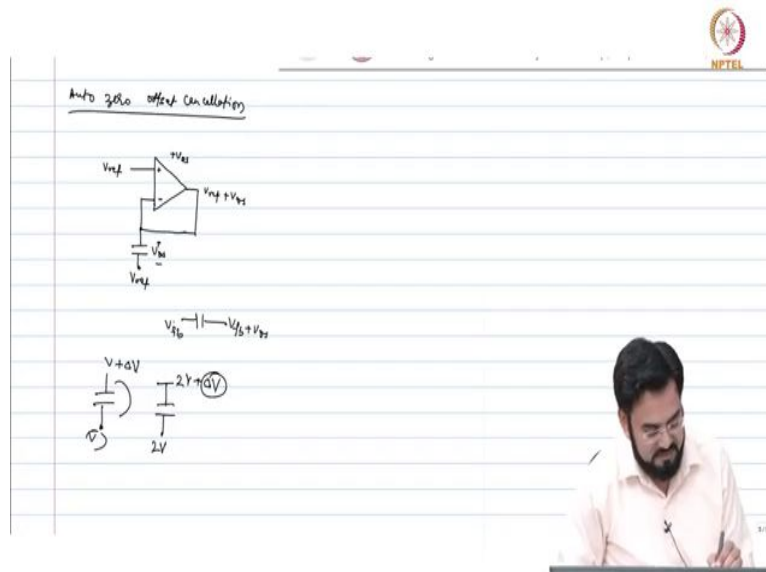 NPTEL
Auto zero offset cancellation
+Vos
Vref
+
Vref + Vos
-
+
Vos
-
Vref
Vfb
Vfb + Vos
V+ΔV
2V+ΔV
V
2V